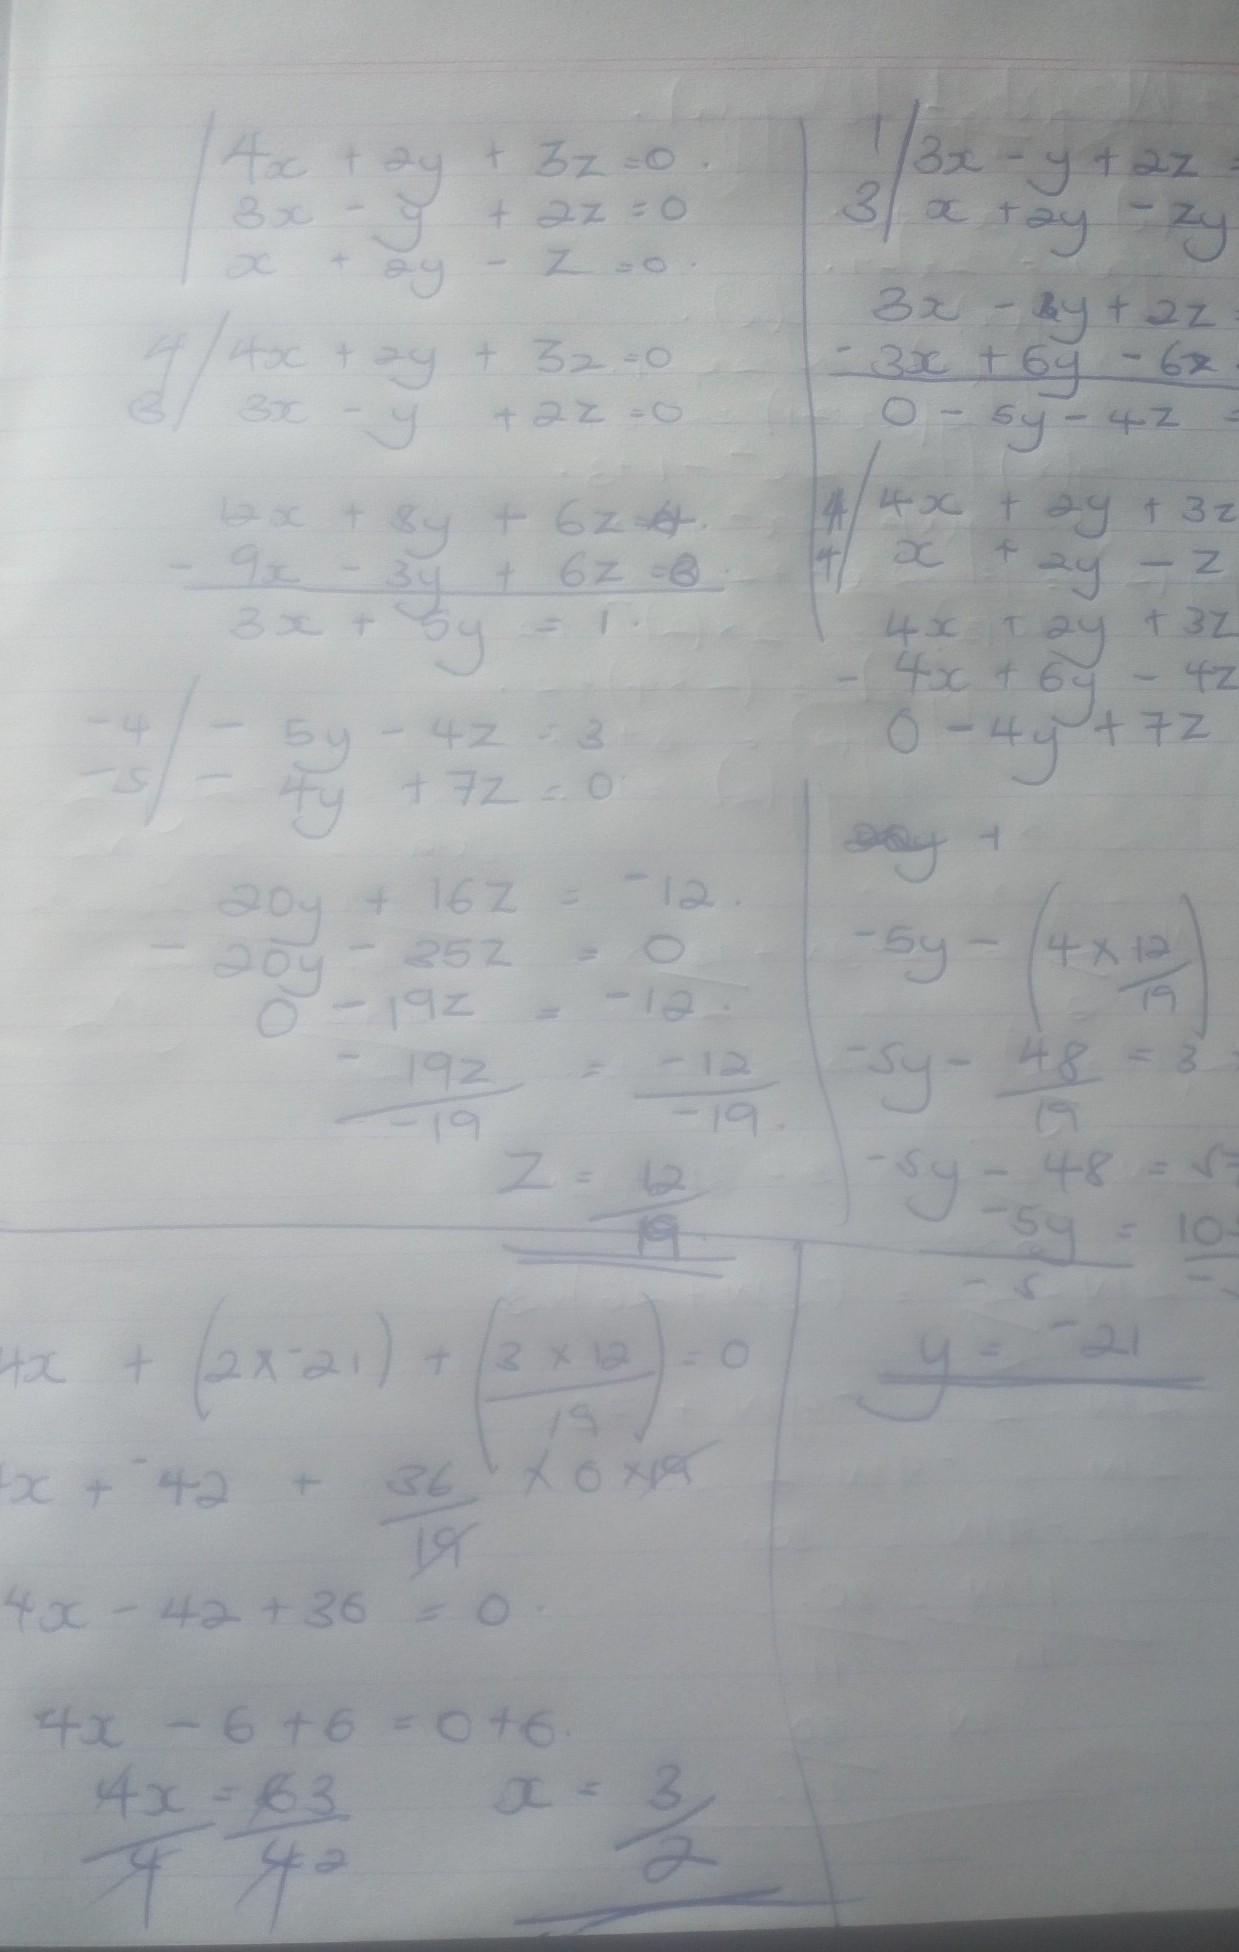 4x + 2y + 3z = 0.
3x - y + 2z = 0
x + 2y - z = 0.
4/ 4x + 2y + 3z = 0
3/ 3x - y + 2z = 0
12x + 8y + 6z =
- 9x - 3y + 6z = 3.
3x + 5y = 1.
-4/ - 5y - 4z = 3
-5/ - 4y + 7z = 0.
20y + 16z = -12.
- 20y - 35z = 0
0 - 19z = -12.
- 19z = -12
-19 -19.
z = 12
19
1/ 3x - y + 2z =
3/ x + 2y - zy
3x - y + 2z =
- 3x + 6y - 6z
0 - 5y - 4z =
4x + 2y + 3z
4/ x + 2y - z
4x + 2y + 3z
- 4x + 6y - 4z
0 - 4y + 7z
y +
-5y - (4 x 12
19)
-5y - 48 = 3
19
-5y - 48 = 5
-5y = 10
-5 -
y = -21
4x + (2x-21) + (3 x 12) = 0
19
x + -42 + 36 x 0 x 19
19
4x - 42 + 36 = 0.
4x - 6 + 6 = 0 + 6.
4x = 63 x = 3
4 42 2